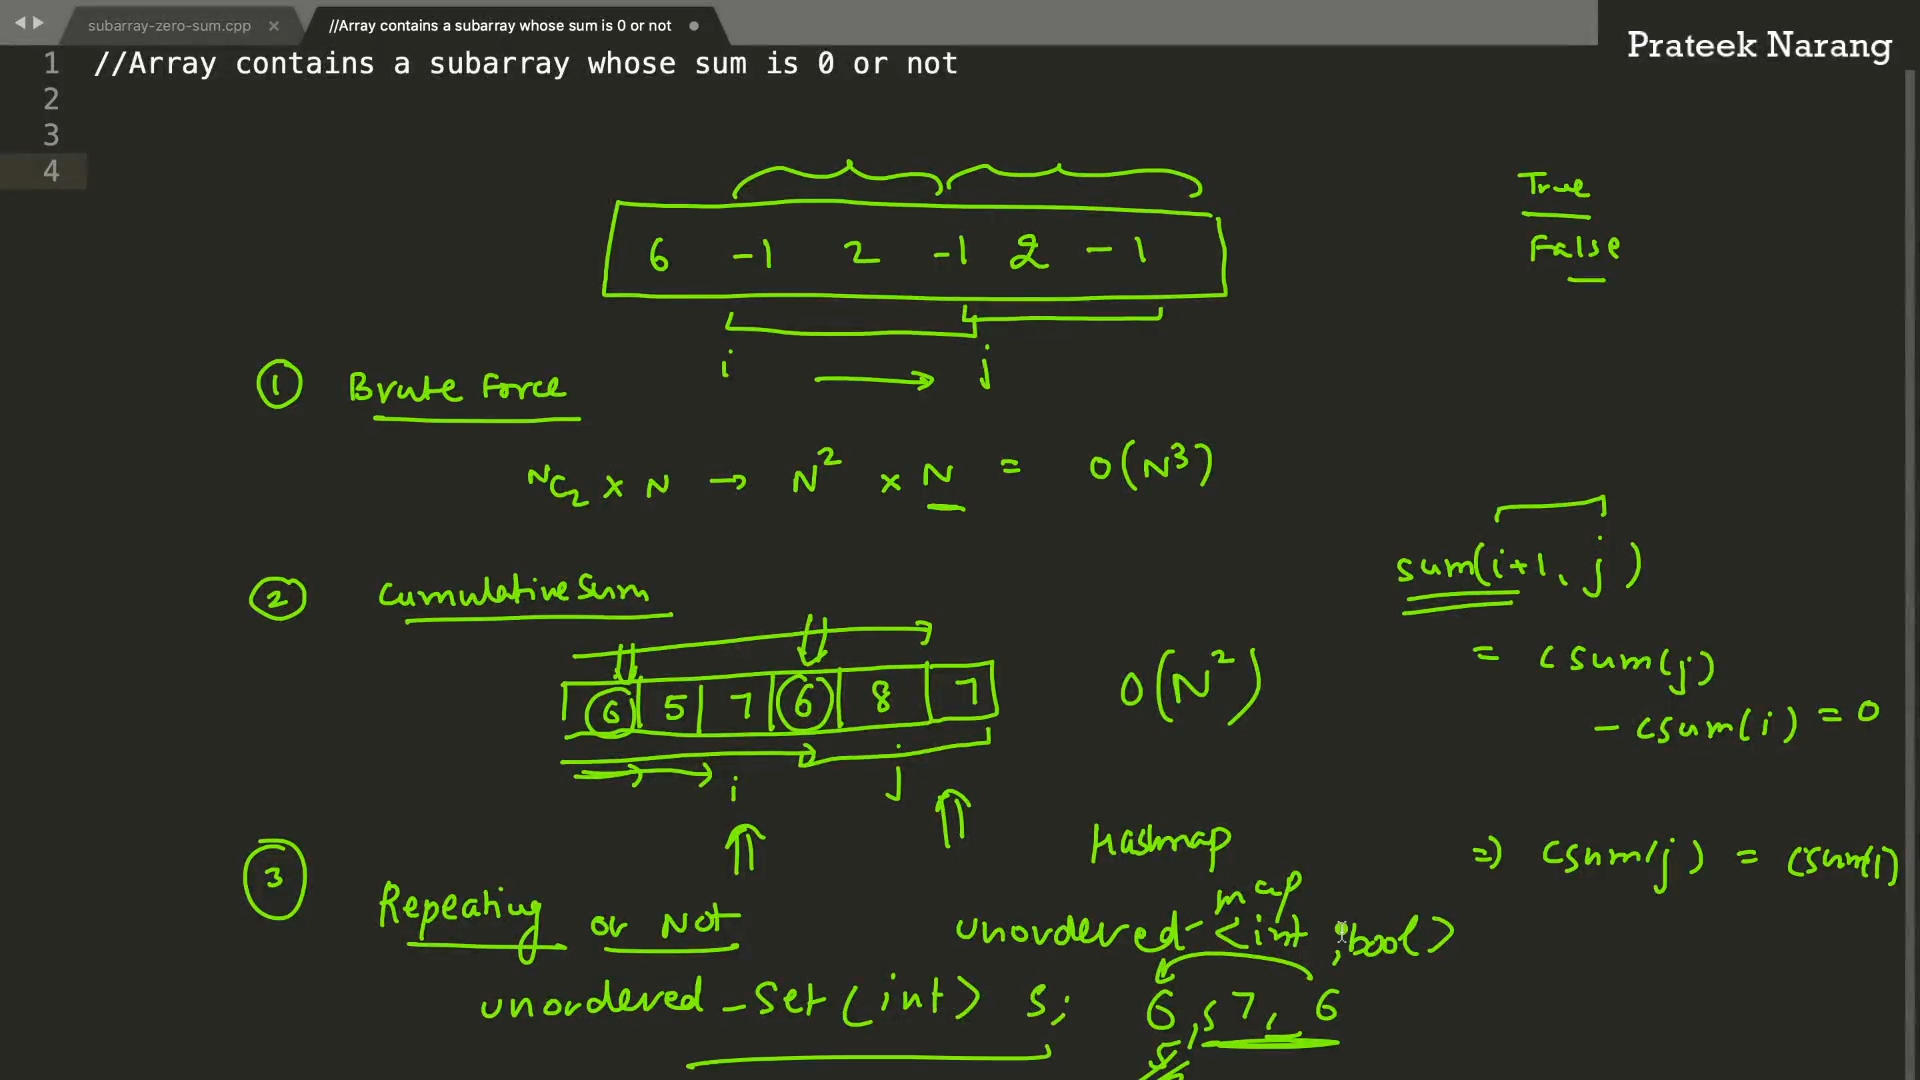 subarray-zero-sum.cpp × //Array contains a subarray whose sum is 0 or not
Prateek Narang
1 //Array contains a subarray whose sum is 0 or not
2
3
4
True
False
6 -1 2 -1 2 -1
i j
1 Brute Force
NC2 x N → N² x N = O(N³)
sum(i+1, j)
= csum(j)
- csum(i) = 0
⇒ csum(j) = csum(i)
2 CumulativeSum
6 5 7 6 8 7
O(N²)
i j
3 Repeating or Not
Hashmap
map
unordered- <int, bool>
unordered_Set(int> s;
6, 5 7, 6